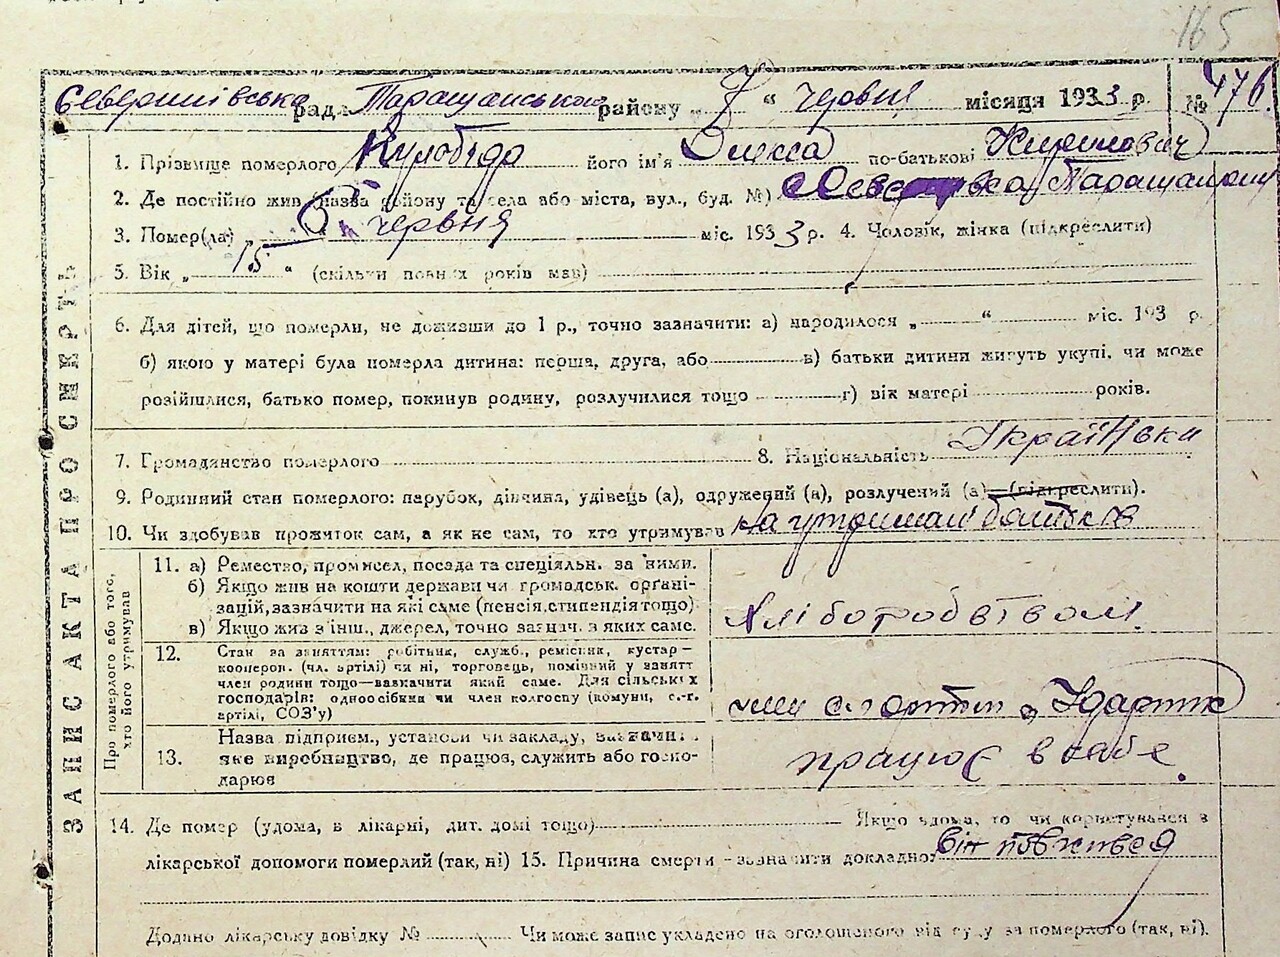 165
Северинівська рада Таращанського району „ 7 “ червня місяця 1933 р. № 476.
1. Прізвище померлого Кулобіда його ім'я Олекса по-батькові Кирилович
2. Де постійно жив (назва району та села або міста, вул., буд. №)
3. Помер(ла) „ 6 “ червня міс. 1933 р. 4. Чоловік, жінка (підкреслити)
5. Вік „ 15 “ (скільки повних років мав)
6. Для дітей, що померли, не доживши до 1 р., точно зазначити: а) народилося „ “ міс. 193 р.
б) якою у матері була померла дитина: перша, друга, або в) батьки дитини живуть укупі, чи може
розійшлися, батько помер, покинув родину, розлучилися тощо г) вік матері років.
7. Громадянство померлого 8. Національність Українська
9. Родинний стан померлого: парубок, дівчина, удівець (а), одружений (а), розлучений (а) (підкреслити).
10. Чи здобував прожиток сам, а як не сам, то хто утримував на утриман батьків
ЗАПИС АКТА ПРО СМЕРТЬ
Про померлого або того, хто його утримував
11. а) Ремество, промисел, посада та спеціяльн. за ними.
б) Якщо жив на кошти держави чи громадськ. органі-
зацій, зазначити на які саме (пенсія, стипендія тощо)
в) Якщо жив з інш., джерел, точно зазнач. з яких саме.
Хліборобством.
12. Стан за заняттям: робітник, служб., ремісник, кустар—
кооперов. (чл. артілі) чи ні, торговець, помічний у занятт
член родини тощо—вазначити який саме. Для сільськ х
господарів: одноосібник чи член колгоспу (комуни, с.-г.
артілі, СОЗ'у)
член с.г артіли Ударник
13. Назва підприєм., установи чи закладу, вазначити
яке виробництво, де працює, служить або госпо-
дарює
працює в себе.
14. Де помер (удома, в лікарні, дит. домі тощо) Якщо вдома, то чи користувався з
лікарської допомоги померлий (так, ні) 15. Причина смерти - зазначити докладно: він
Додано лікарську довідку № Чи може запис укладено на оголошеного від суду за померлого (так, ні).